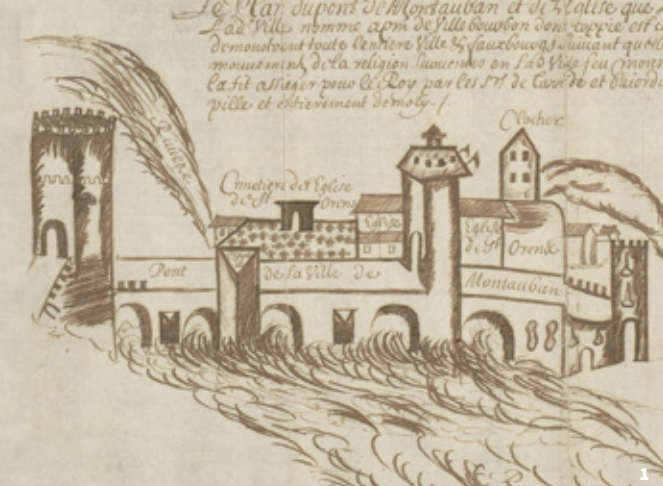 Le Plan du pont de Montauban et de l'Eglise que
Lad Ville nomme apnt de Villebourbon dont coppie est
demonstrent toute lentiere Ville & fauxbourgs suivant
mouvement de la religion survenues en lad Ville feu
la fit assieger pour le Roy par les Srs de et
ville et entierement demoly
Clocher
Riviere
Cimetiere de l'Eglise
de St Orens
Eglise
Eglise
de St Orens
Pont de la Ville de Montauban
1